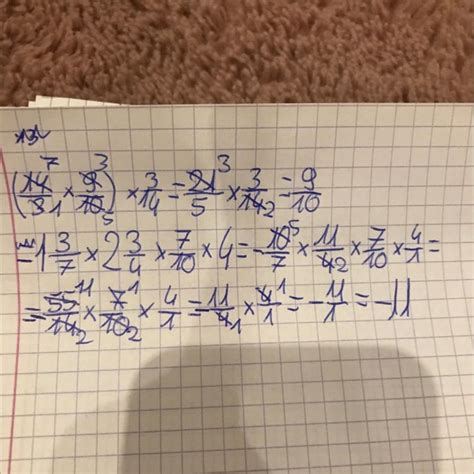 (14⁷/3₁ × 9³/10₅) × 3/14 = 21³/5 × 3/14₂ = 9/10
-1 3/7 × 2 3/4 × 7/10 × 4 = -10⁵/7 × 11/4₂ × 7/10 × 4/1 =
= -55¹¹/14₂ × 7¹/10₂ × 4/1 = -11/4₁ × 4¹/1 = -11/1 = -11